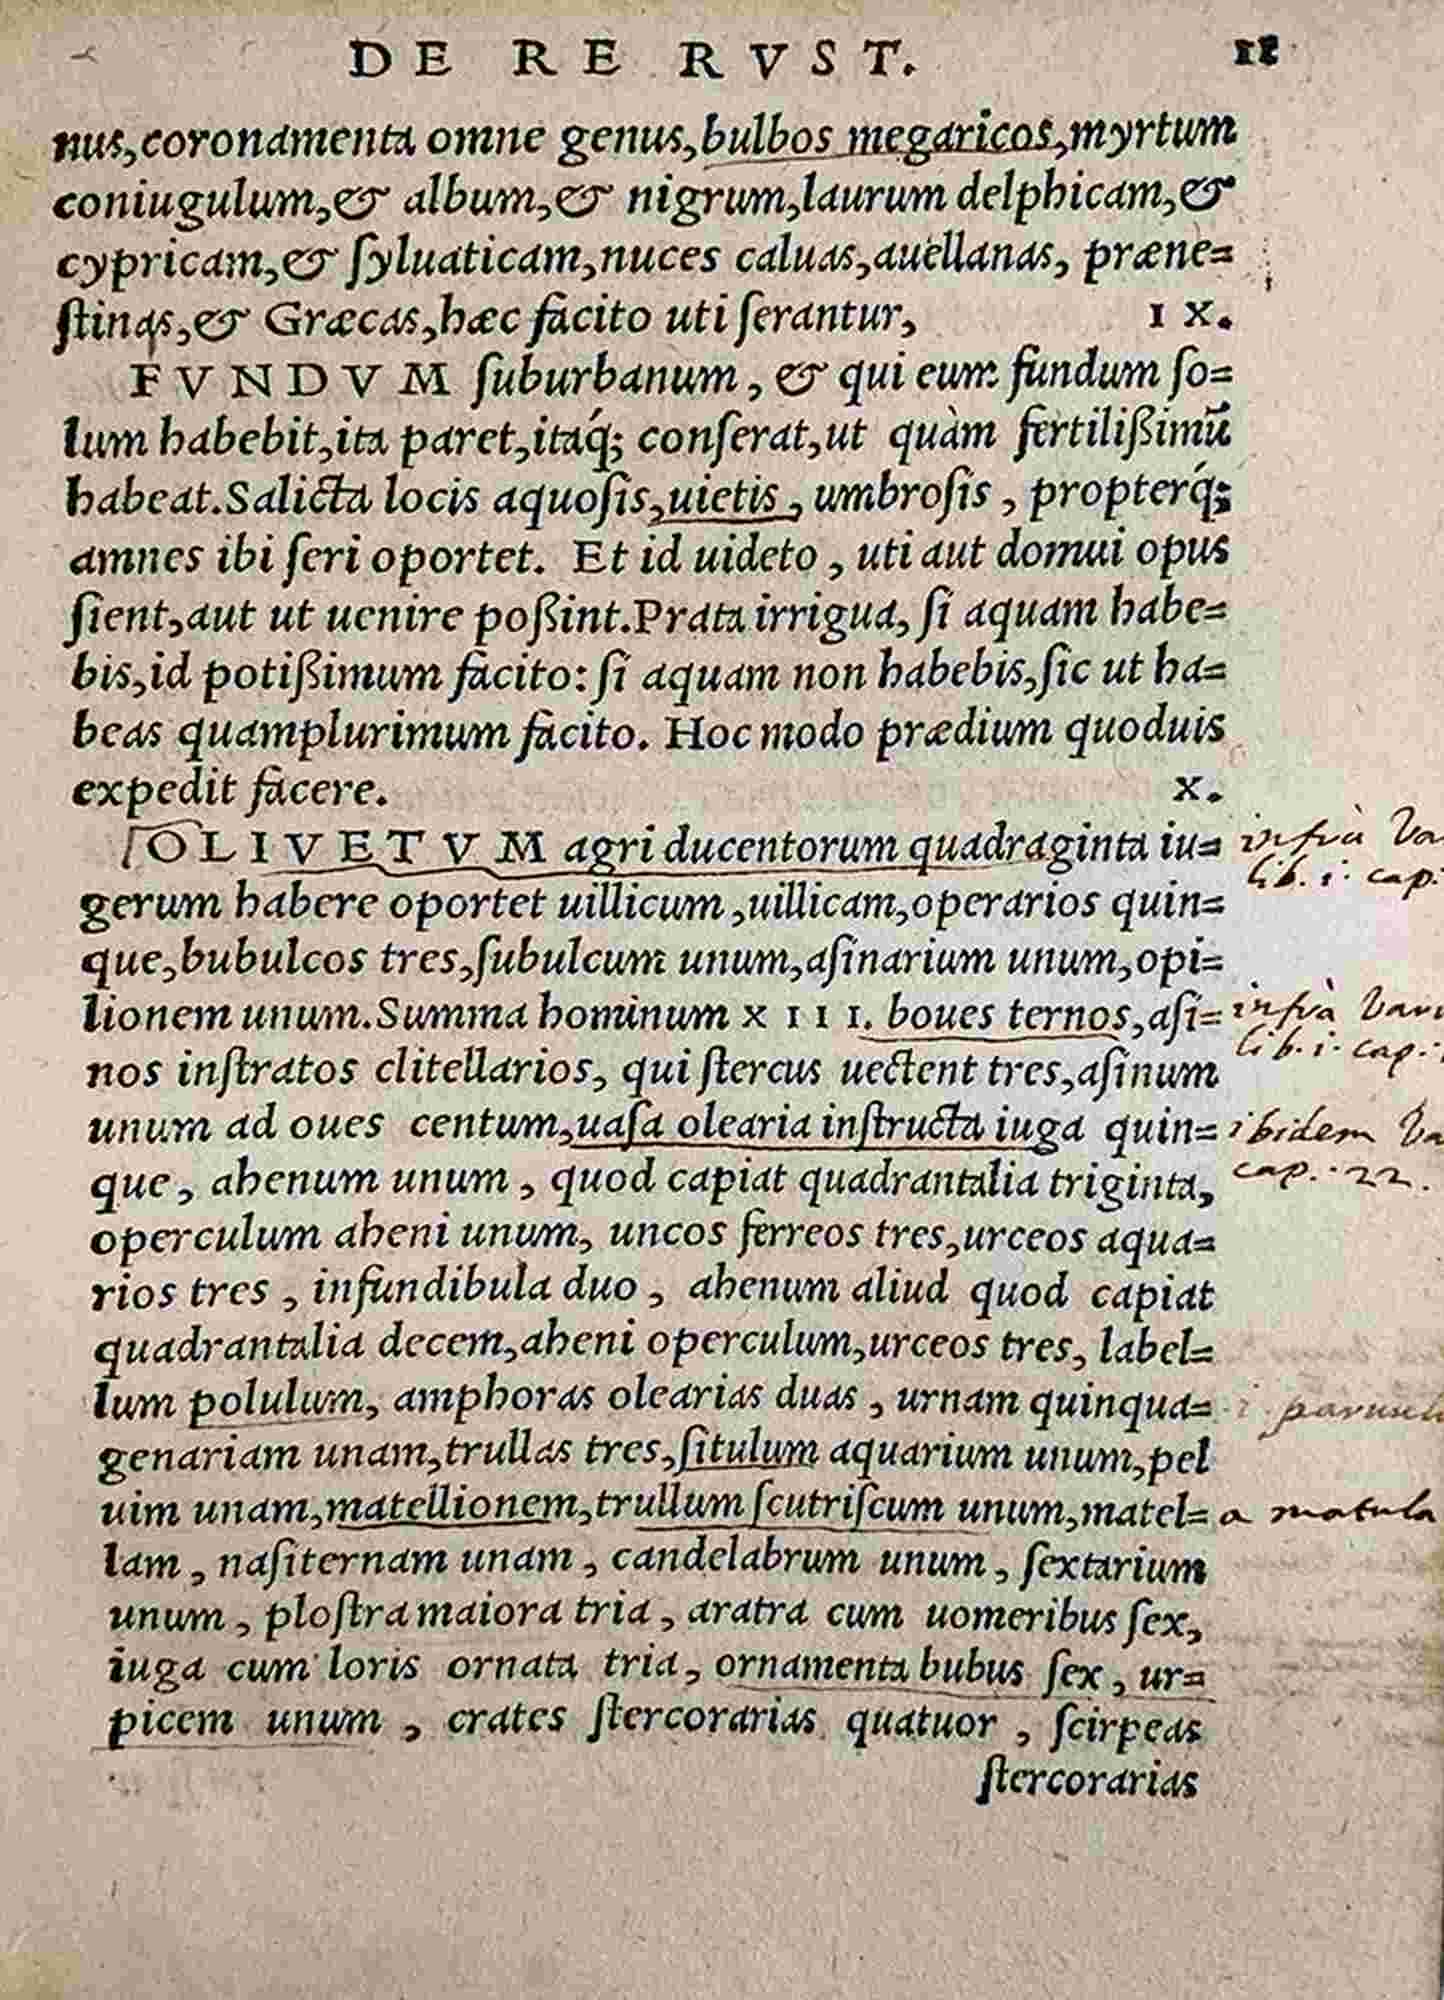 DE RE RVST. 18
nus,coronamenta omne genus,bulbos megaricos,myrtum
coniugulum,& album,& nigrum,laurum delphicam,&
cypricam,& ſyluaticam,nuces caluas,auellanas, præne=
ſtinas,& Græcas,hæc facito uti ſerantur, IX.
FVNDVM ſuburbanum, & qui eum fundum ſo=
lum habebit,ita paret,itaq́; conſerat,ut quàm fertilißimū
habeat.Salicta locis aquoſis,uietis, umbroſis, propterq́;
amnes ibi ſeri oportet. Et id uideto, uti aut domui opus
ſient,aut ut uenire poßint.Prata irrigua, ſi aquam habe=
bis,id potißimum facito: ſi aquam non habebis,ſic ut ha=
beas quamplurimum facito. Hoc modo prædium quoduis
expedit facere. X.
OLIVETVM agri ducentorum quadraginta iu= infrà Va
lib. i. cap.
gerum habere oportet uillicum,uillicam,operarios quin=
que,bubulcos tres,ſubulcum unum,aſinarium unum,opi=
lionem unum.Summa hominum XIII. boues ternos,aſi= infrà Varr
lib. i. cap.
nos inſtratos clitellarios, qui ſtercus uectent tres,aſinum
unum ad oues centum,uaſa olearia inſtructa iuga quin= ibidem Va
cap. 22.
que, ahenum unum, quod capiat quadrantalia triginta,
operculum aheni unum, uncos ferreos tres,urceos aqua=
rios tres, infundibula duo, ahenum aliud quod capiat
quadrantalia decem,aheni operculum,urceos tres, label=
lum polulum, amphoras olearias duas, urnam quinqua= i parnul
genariam unam,trullas tres,ſitulum aquarium unum,pel
uim unam,matellionem,trullum ſcutriſcum unum,matel= a matula
lam, naſiternam unam, candelabrum unum, ſextarium
unum, ploſtra maiora tria, aratra cum uomeribus ſex,
iuga cum loris ornata tria, ornamenta bubus ſex, ur=
picem unum, crates ſtercorarias quatuor, ſcirpeas
ſtercorarias